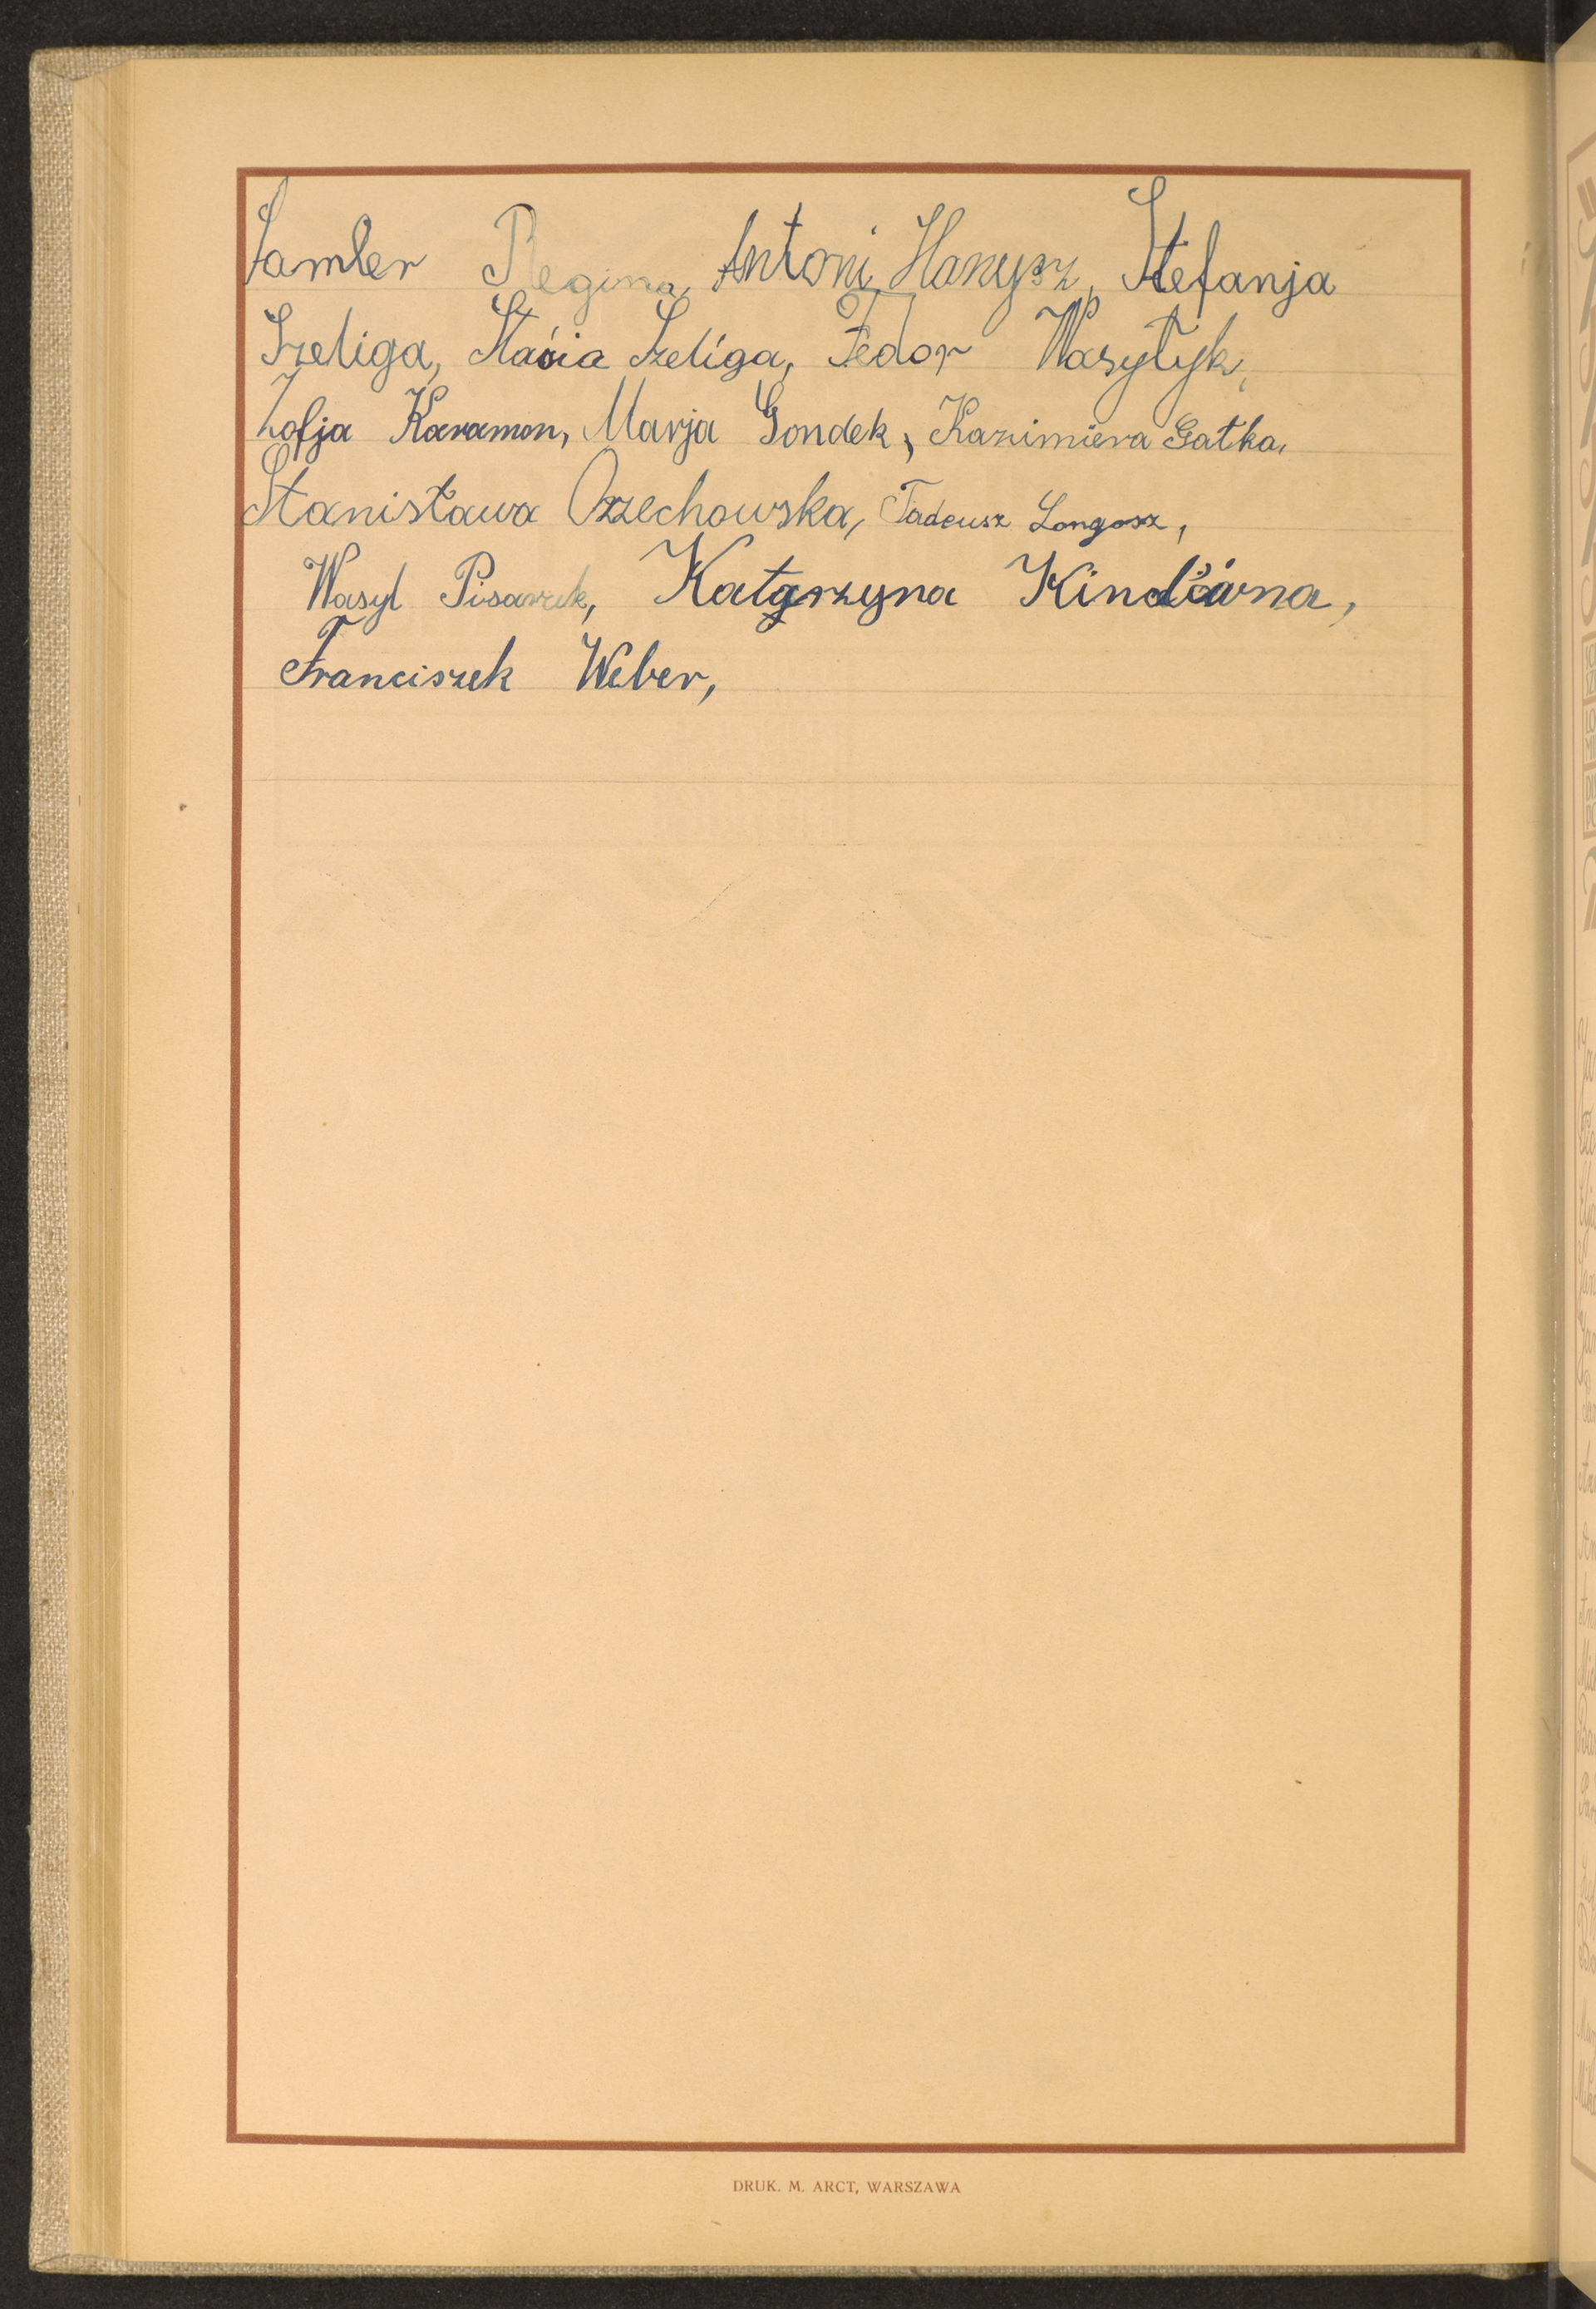 Samler Regina, Antoni Hanysz, Stefanja
Szeliga, Stasia Szeliga, Fedor Wasyłyk,
Zofja Karamon, Marja Gondek, Kazimiera Gatka,
Stanisława Orzechowska, Tadeusz Longosz,
Wasyl Pisarek, Katarzyna
Franciszek Weber,
DRUK. M. ARCT, WARSZAWA